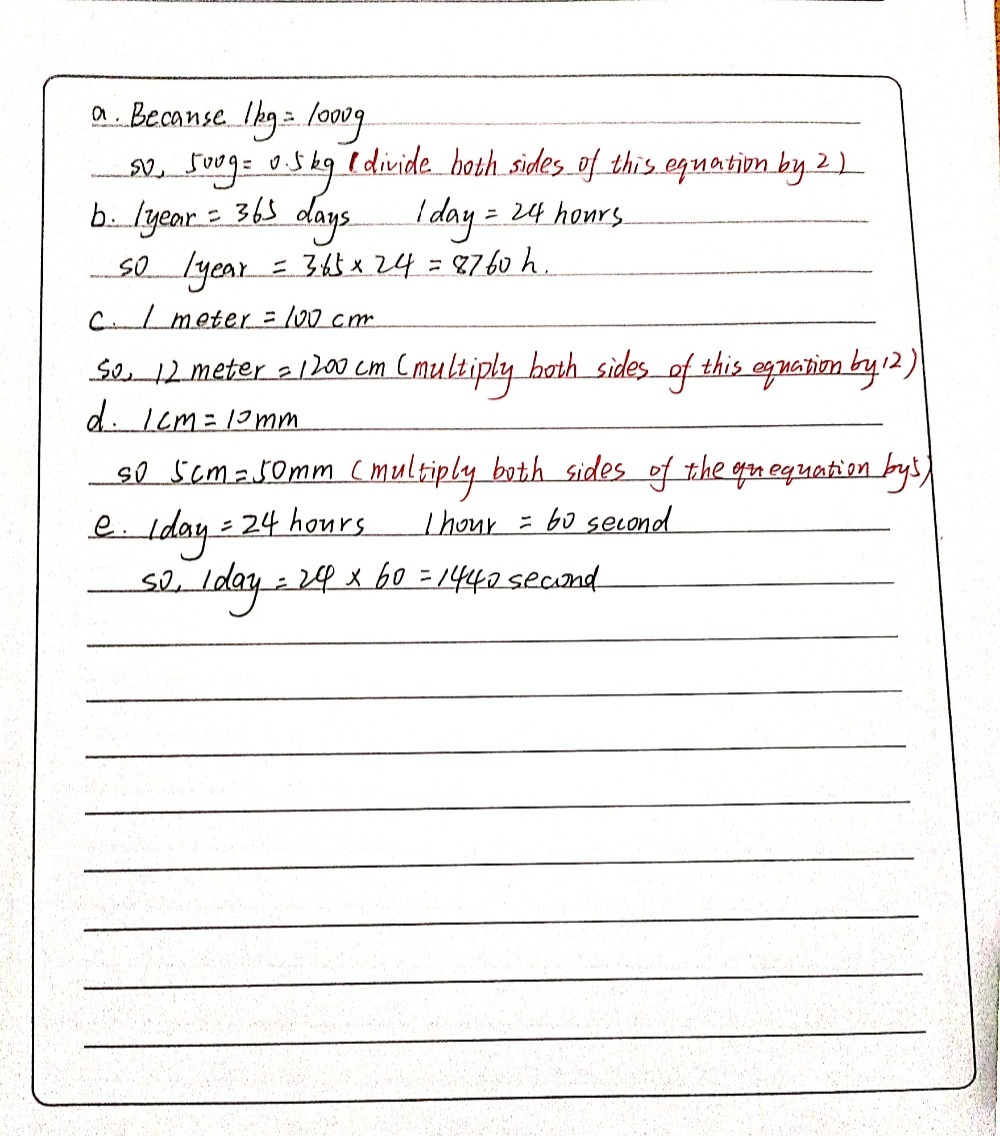 a. Becanse 1kg = 1000g
so, 500g = 0.5 kg (divide both sides of this equation by 2)
b. 1year = 365 days 1 day = 24 hours
so 1year = 365 x 24 = 8760 h.
c. 1 meter = 100 cm
so, 12 meter = 1200 cm (multiply both sides of this equation by 12)
d. 1cm = 10mm
so 5cm = 50mm (multiply both sides of the equation by 5)
e. 1day = 24 hours 1 hour = 60 second
so, 1day = 24 x 60 = 1440 second